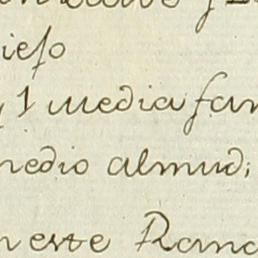 ieſo
y 1 media fan
medio almud;
n este Ranc